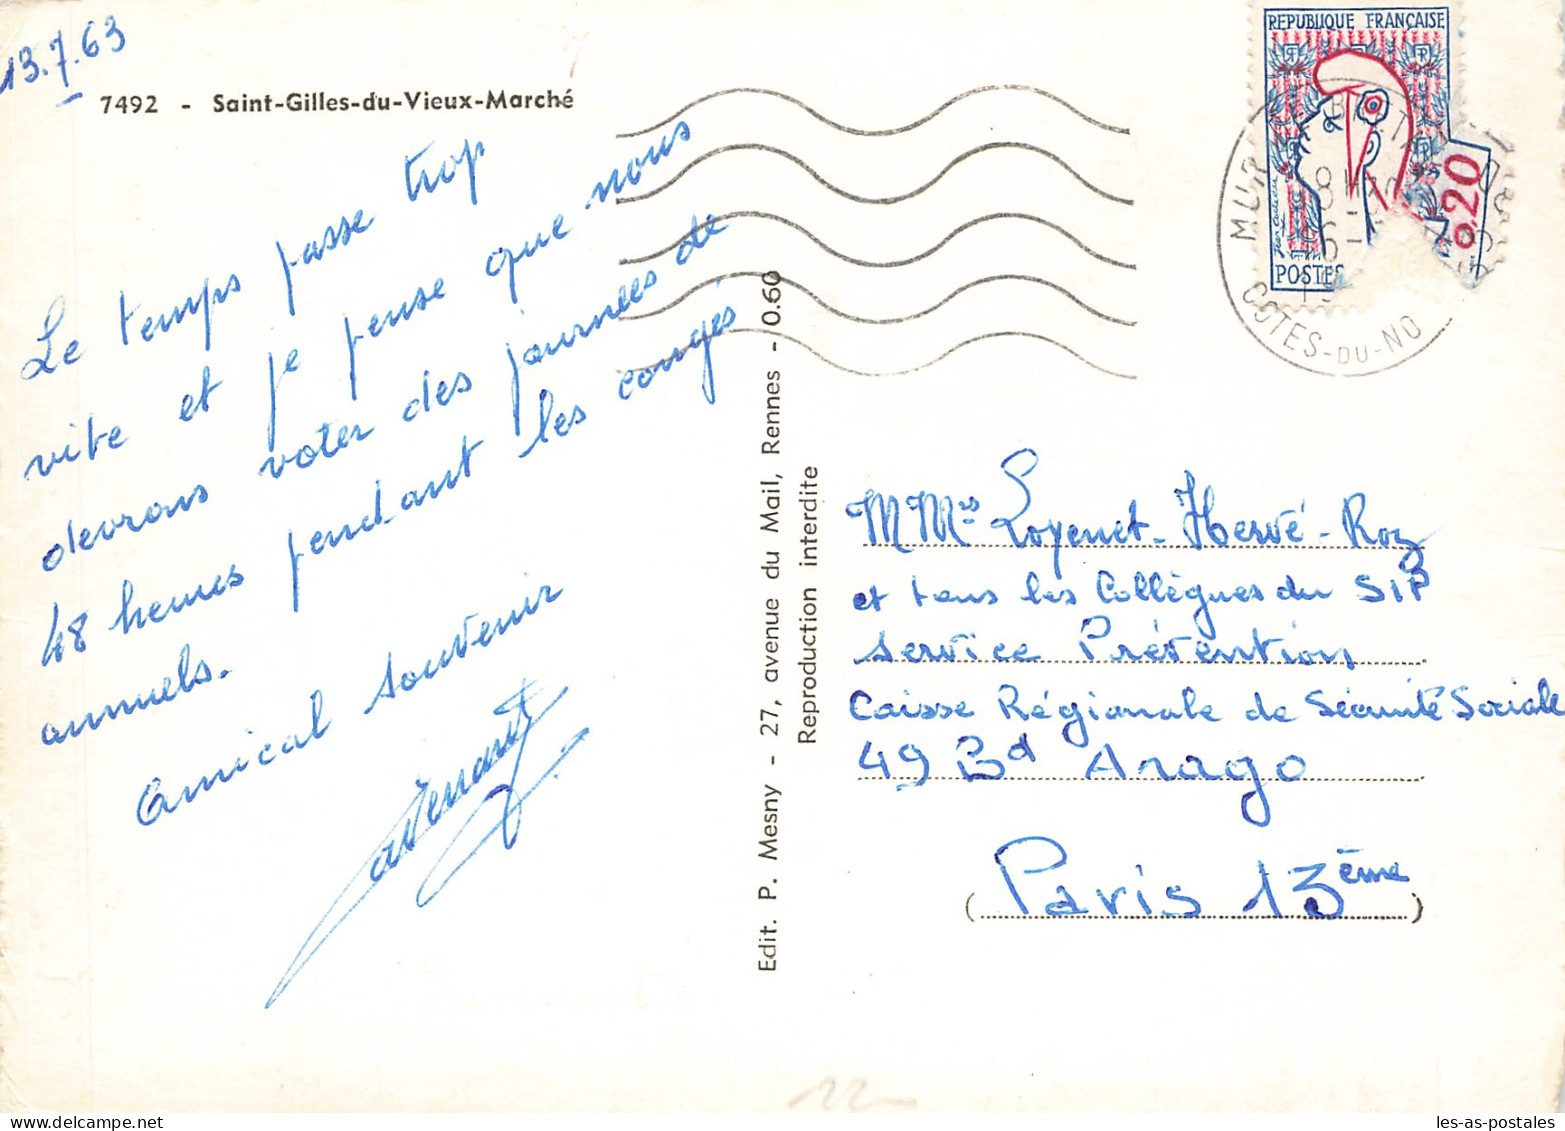 13.7.63
7492 - Saint-Gilles-du-Vieux-Marché
Le temps passe trop
vite et je pense que nous
devrons voter des journées de
48 heures pendant les congés
annuels.
Amical souvenir
Edit. P. Mesny - 27, avenue du Mail, Rennes - 0.60
Reproduction interdite
REPUBLIQUE FRANÇAISE
0,20
POSTES
MUR
COTES-DU-NO
MMrs Loyenet-Hervé-Roz
et tous les Collègues du SIP
Service Prévention
Caisse Régionale de Sécurité Sociale
49 Bd Arago
(Paris 13ème)
22
les-as-postales